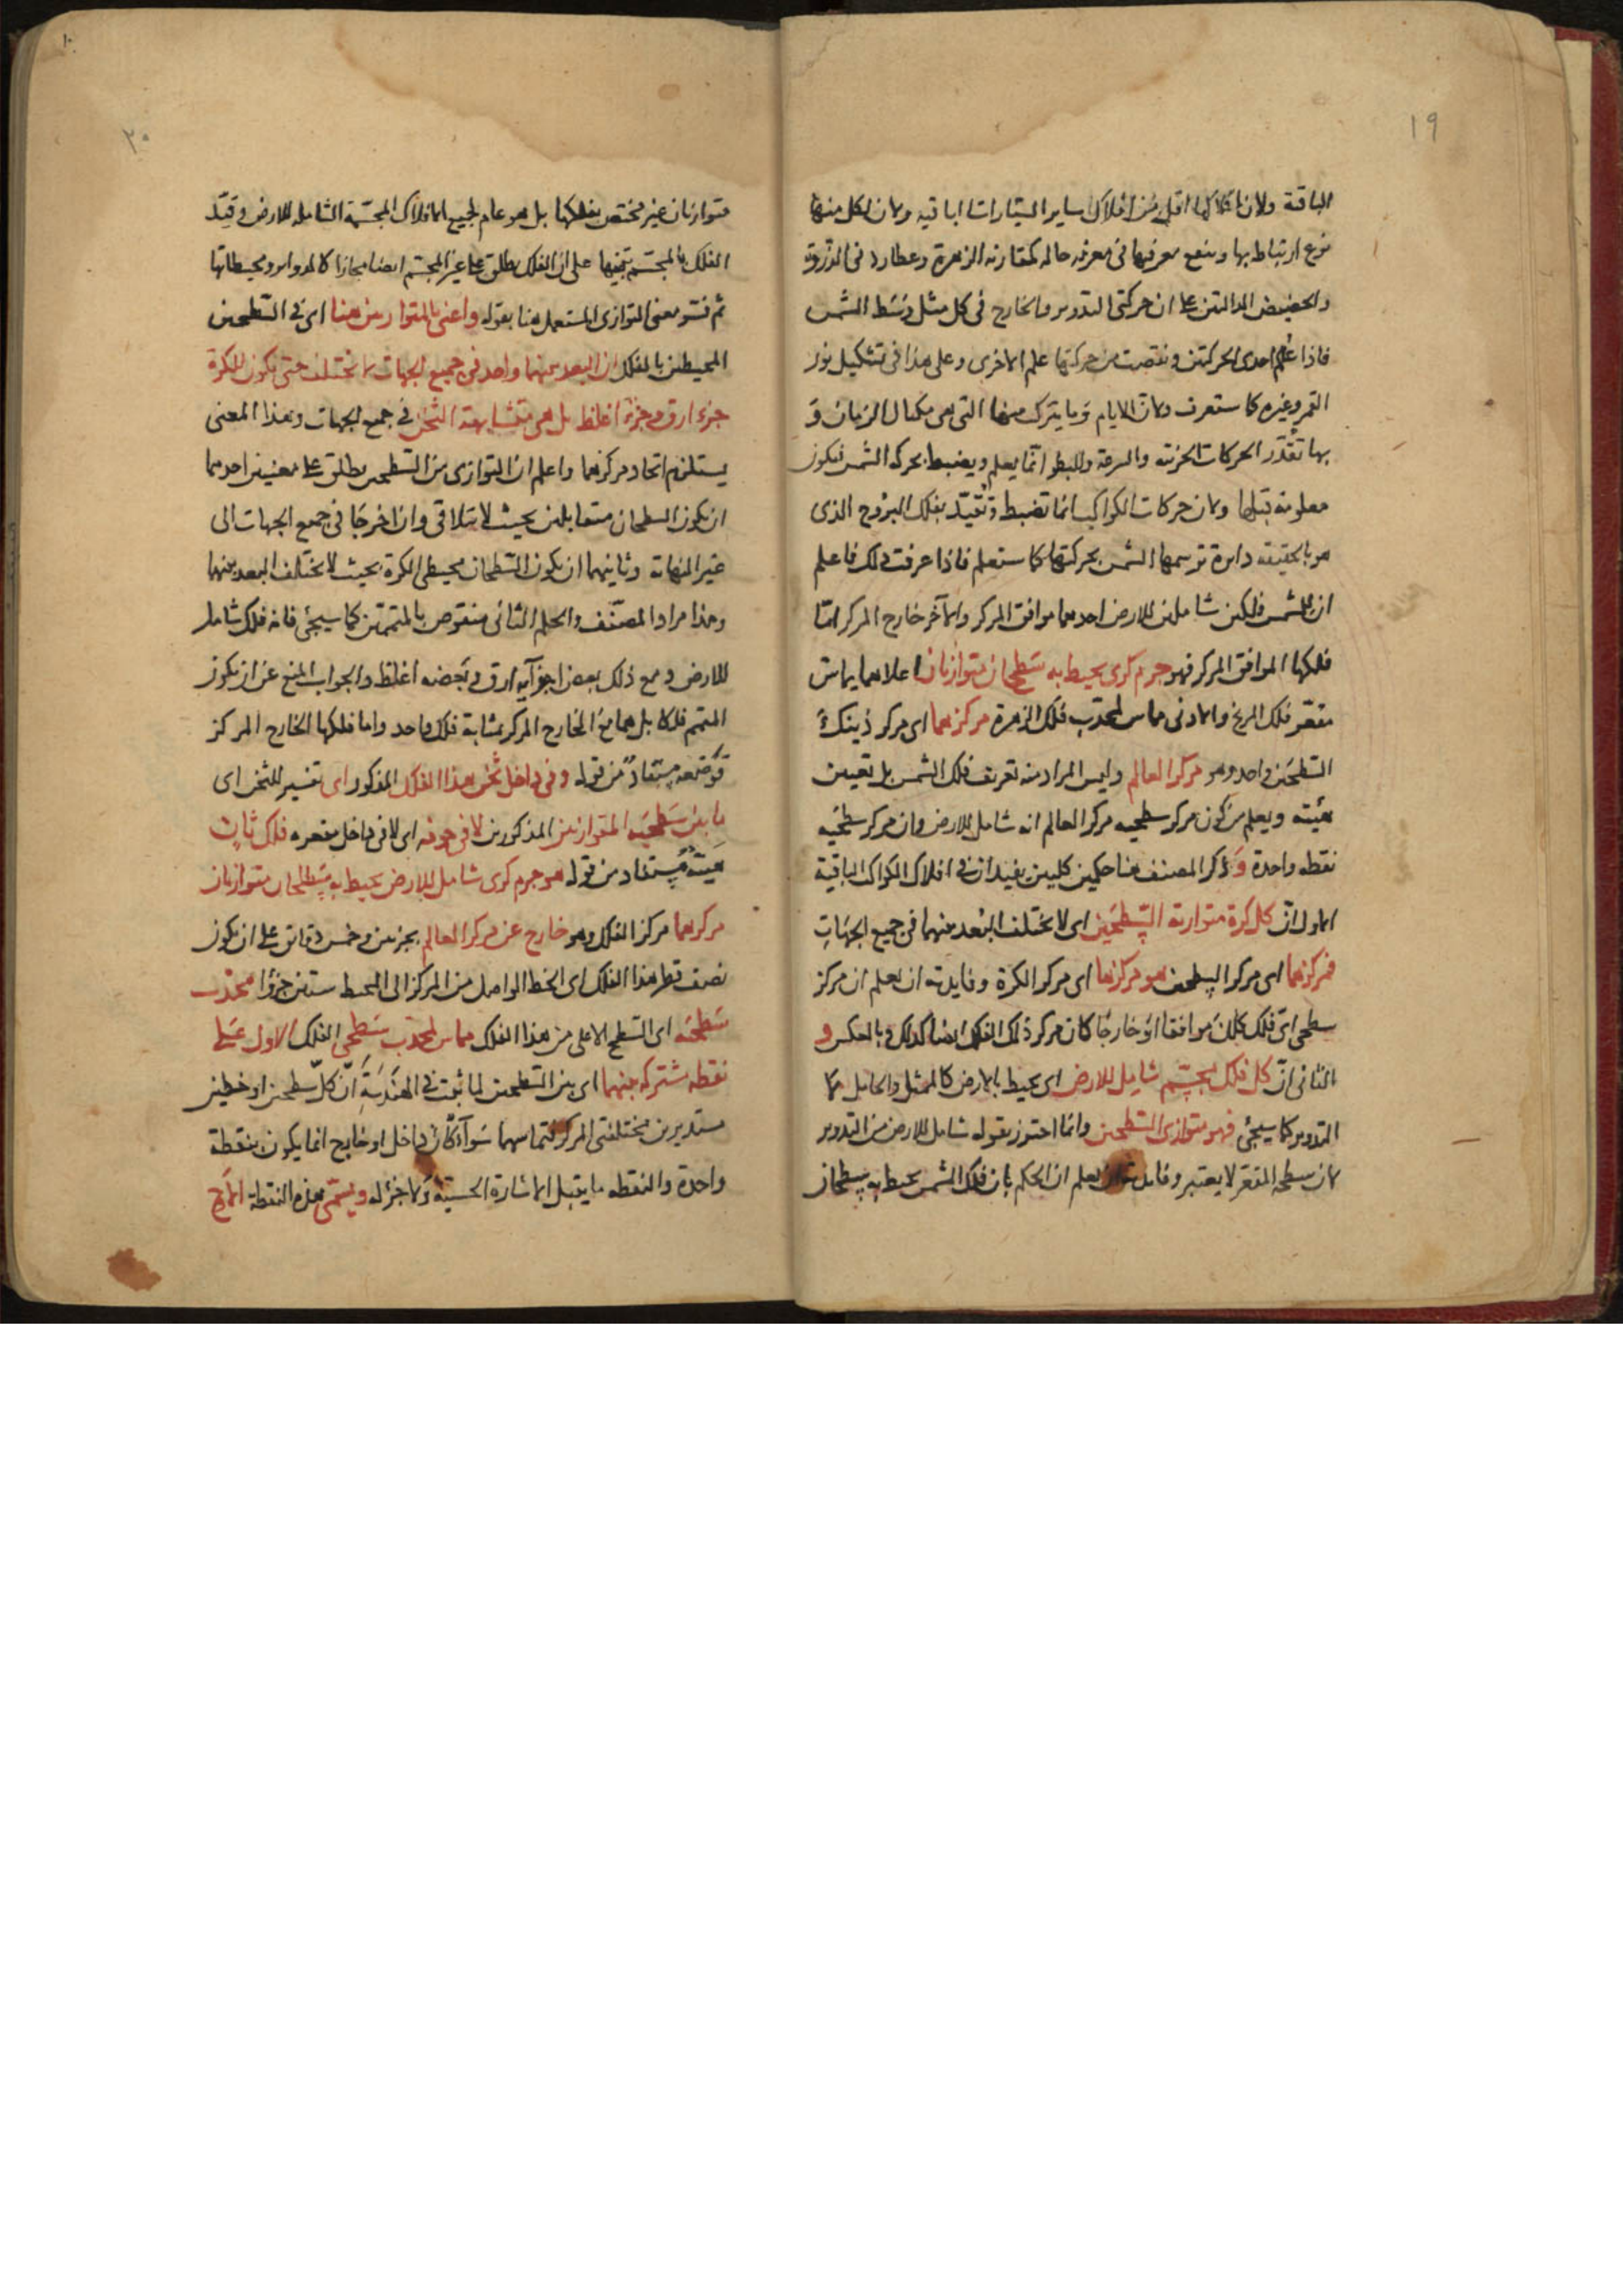 ١٩
الباقية ولان افلاكها اقل من افلاك ساير السيارات الباقيه ولان لكل منها
نوع ارتباط بها وينفع معرفتها فى معرفه حاله كمقارنه الزهرة وعطارد فى الذروة
والحضيض الدالتين على ان حركتى التدوير والخارج فى كل مثل وسط الشمس
فاذا علم احدى الحركتين ونقصت من حركتها علم الاخرى وعلى هذا فى تشكيل نور
القمر وغيره كما ستعرف ولان الايام وما يتركب منها التى هى مكيال الزمان و
بها تقدّر الحركات الجزئية والسرعة والبطو انما يعلم ويضبط بحركه الشمس فيكون
معلومة قبلها ولان حركات الكواكب انما تضبط وتقيّد بفلك البروج الذى
هو بالحقيقه دايرة ترسمها الشمس بحركتها كما ستعلم فاذا عرفت ذلك فاعلم
ان للشمس فلكين شاملين للارض احدهما موافق المركز والآخر خارج المركز امّا
فلكها الموافق المركز فهو جرم كرى يحيط به سطحان متوازيان اعلاهما يماس
مقعّر فلك المريخ والادنى مماس لمحدّب فلك الزهرة مركزهما اى مركز ذينك
السّطحين واحد وهو مركز العالم وليس المراد منه تعريف فلك الشمس بل تعيين
هيئته ويعلم من كون مركز سطحيه مركز العالم انه شامل للارض وان مركز سطحيه
نقطه واحدة وذكر المصنف هنا حكمين كليين يفيدان فى افلاك الكواكب الباقية
الاول انّ كل كرة متوازية السّطحين اى لا يختلف البُعد بينهما فى جميع الجهات
فمركزهما اى مركز السطحين هو مركزها اى مركز الكرة وفايدته ان يعلم ان مركز
سطحى اىّ فلك كان موافقا او خارجًا كان مركز ذلك الفلك ايضا كذلك وبالعكس و
الثانى انّ كل فلك مجسّم شامل للارض اى محيط بالارض كالممثل والحامل لا
التدوير كما سيجئ فهو متوازى السّطحين وانما احترز بقوله شامل للارض من التدوير
لان سطحه المقعّر لا يعتبر وفايدته ان يعلم ان الحكم بان فلك الشمس يحيط به سطحان
٢٠
متوازيان غير مختص بفلكها بل هو عام لجميع الافلاك المجسّمة الشامله للارض وقيّد
الفلك بالمجسّم تنبيها على ان الفلك يطلق على غير المجسّم ايضا مجازا كالدواير ومحيطاتها
ثم فسّر معنى التوازى المستعمل هنا بقوله واعنى بالمتوازيين هنا اى فى السّطحين
المحيطين بالفلك ان البعد بينهما واحد فى جميع الجهات لا يختلف حتى يكون للكرة
جزء ارق وجزء اغلظ بل هى متشابهة الثخن فى جميع الجهات وهذا المعنى
يستلزم اتحاد مركزهما واعلم ان التوازى بين السّطحين يطلق على معنيين احدهما
ان يكون السطحان متقابلين بحيث لا يتلاقى وان اخرجا فى جميع الجهات الى
غير النهاية وثانيهما ان يكون السّطحان محيطى الكرة بحيث لا يختلف البعد بينهما
وهذا مراد المصنّف والحكم الثانى منقوض بالمتممين كما سيجئ فانه فلك شامل
للارض ومع ذلك بعض اجزآيه ارق وبعضه اغلظ والجواب المنع عن ان يكون
المتمم فلكا بل هما مع الخارج المركز بمثابة فلك واحد واما فلكها الخارج المركز
فوضعه مستفاد من قوله وفى داخل ثخن هذا الفلك المذكور اى تفسير للثخن اى
ما بين سطحيه المتوازيين المذكورين لا فى جوفه اى لا فى داخل مقعره فلك ثان
هيئته مستفاد من قوله هو جرم كرى شامل للارض يحيط به سطحان متوازيان
مركزهما مركز الفلك وهو خارج عن مركز العالم بجزئين وخمس دقايق على ان يكون
نصف قطر هذا الفلك اى الخط الواصل من المركز الى المحيط ستين جزؤا محدّب
سطحيه اى السّطح الاعلى من هذا الفلك مماس لمحدّب سطحى الفلك الاول على
نقطه مشتركه بينهما اى بين السّطحين لما ثبت فى الهندسة انّ كلّ سطحين او خطين
مستديرين مختلفتى المركز فتماسهما سوآء كان داخل او خارج انما يكون بنقطة
واحدة والنقطه ما يقبل الاشارة الحسيّة ولا جزء له ويسمّى هذه النقطة الاوج